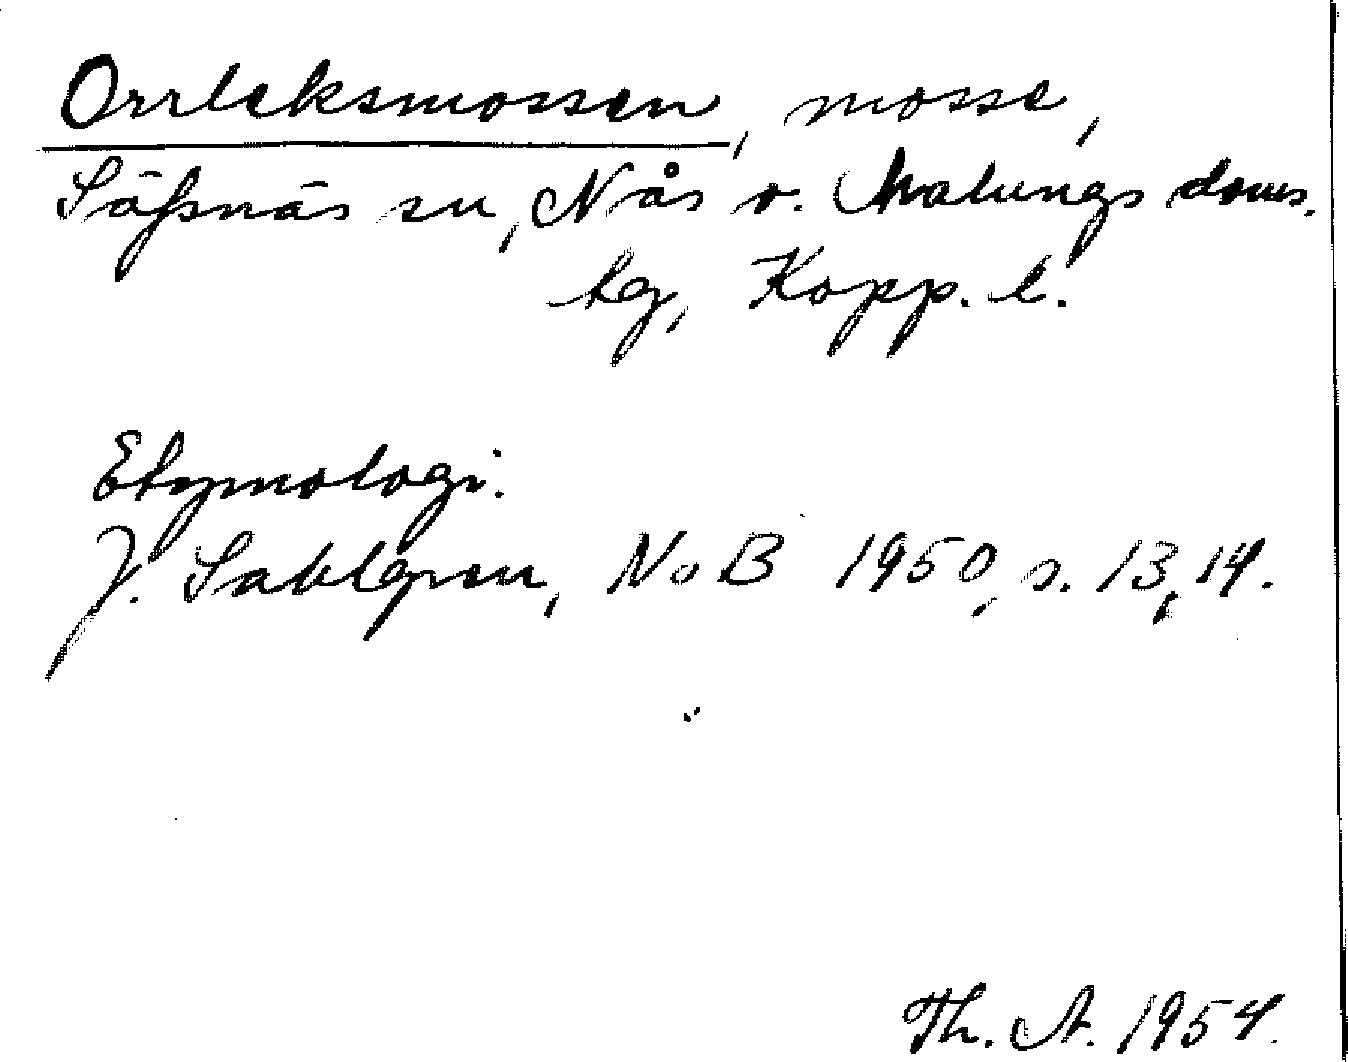 Orrleksmossen, mosse,
Säfsnäs sn, Nås o. Malungs doms.
hg, Kopp. l.
Etymologi.
J. Sahlgren, NoB 1950, s. 13, 14.
Th. A. 1954.